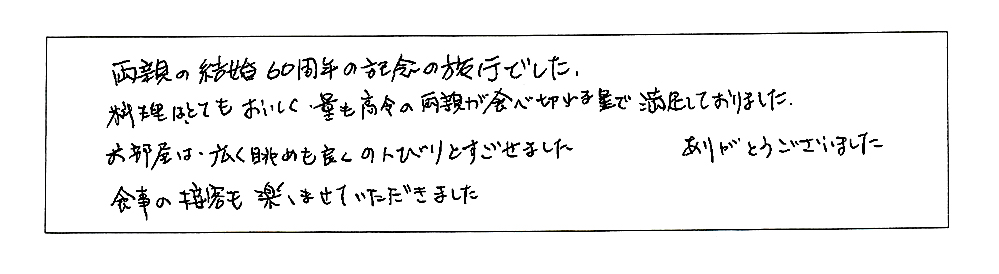 両親の結婚60周年の記念の旅行でした.
料理はとてもおいしく、量も高令の両親が食べ切れる量で満足しておりました.
お部屋は、広く眺めも良くのんびりとすごせました ありがとうございました
食事の接客も楽しませていただきました